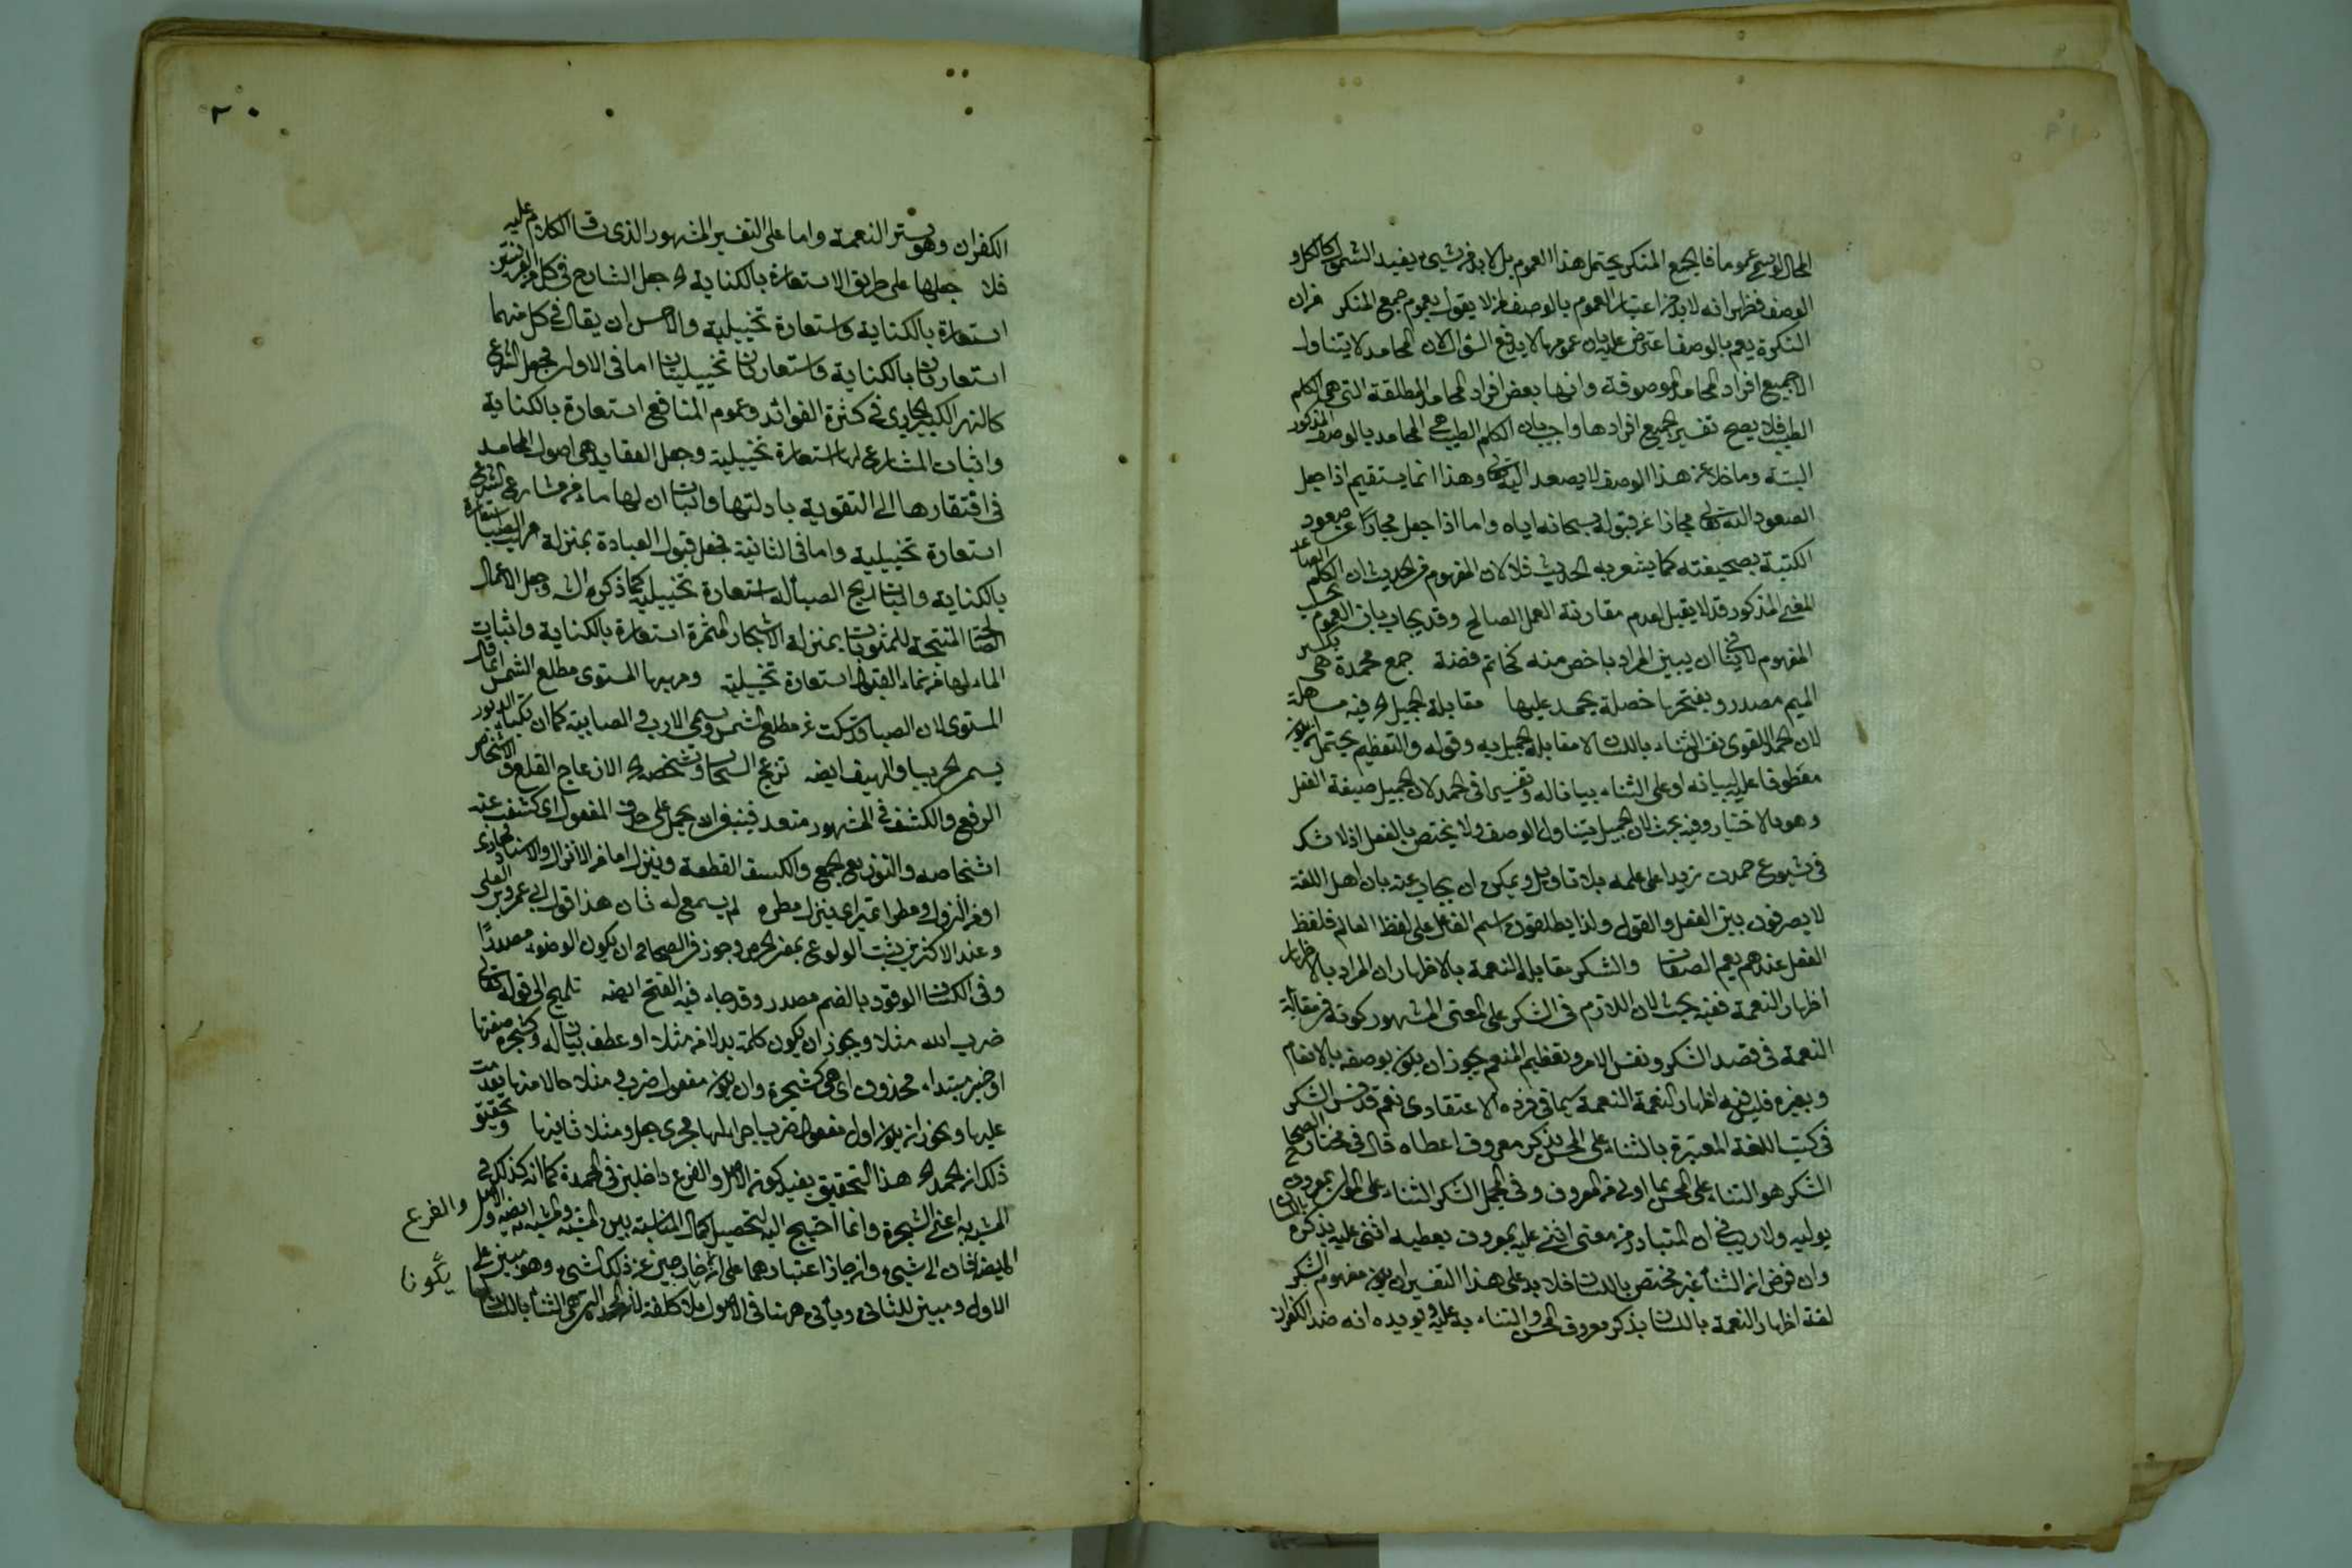 المحال لا يسمى عموما فالجمع المنكر يحتمل هذا العموم بل لا بد من شيء يفيد الشمول كالكل و
الوصف فظهر انه لا بد من اعتبار العموم بالوصف من لا يقول بعموم جمع المنكر فران
النكرة يعم بالوصف اعترض عليه بان عمومها لا يدفع السؤال لان المحامد لا يتناول
الا جميع افراد المحامد الموصوفة وانها بعض افراد المحامد المطلقة التي هي الكلم
الطيب فلا يصح تفسير بجميع افرادها واجيب بان الكلم الطيب هي المحامد بالوصف المذكور
البتة وما خلا عن هذا الوصف لا يصعد اليه تعالى وهذا انما يستقيم اذا جعل
الصعود اليه تعالى مجازا عن قبوله سبحانه اياه واما اذا جعل مجازا عن صعود
الكتبة بصحيفته كما يشعر به الحديث فلا لان المفهوم من الحديث ان الكلم الصاعد
المعنى المذكور قد لا يقبل لعدم مقارنة العمل الصالح وقد يجاب بان العموم بحسب
المفهوم لا ينافي ان يبين المراد باخص منه كخاتم فضة جمع محمدة هي بكسر
الميم مصدر وبفتحها خصلة يحمد عليها مقابلة الجميل الخ فيه مساهلة
لان الحمد اللغوي نفس الثناء باللسان لا مقابلة الجميل به وقوله والتعظيم يحتمل ان يكون
معطوفا على لسانه او على الثناء بيانا له وتفسيرا في الحمد لان الجميل صيغة الفعل
وهو بالاختيار وفيه بحث لان الجميل يتناول الوصف ولا يختص بالفعل اذ لا شك
في شيوع حمدت زيدا على علمه بلا تاويل ويمكن ان يجاب عنه بان اهل اللغة
لا يفرقون بين الفعل والقول ولذا يطلقون اسم الفاعل على لفظ العالم فلفظ
الفعل عندهم يعم الصفات والشكر مقابلة النعمة بالاظهار ان المراد بالاظهار
اظهار النعمة ففيه بحث لان اللازم في الشكر على المعنى المشهور كونه في مقابلة
النعمة في قصد الشكر ونفس الامر وتعظيم المنعم يجوز ان يكون بوصفه بالانعام
وبغيره فليس فيه اظهار النعمة سيما في فرده الاعتقادي نعم قد فسر الشكر
في كتب اللغة المعتبرة بالثناء على المحسن بذكر معروف اعطاه قال في مختار الصحاح
الشكر هو الثناء على المحسن بما اولى من المعروف وفي المجمل الشكر الثناء على الانسان بمعروف
يوليه ولا ريب في ان المتبادر من معنى اثنى عليه بمعروف يعطيه اثنى عليه بذكره باللسان
وان فرض ان الثناء غير مختص باللسان فلا بد على هذا التفسير ان يكون مفهوم الشكر
لغة اظهار النعمة باللسان بذكر معروف المحسن والثناء به عليه ويويده انه ضد الكفران
٢٠
الكفران وهو ستر النعمة واما على التفسير المشهور الذي ساق الكلام عليه
فلا جعلها على طريق الاستعارة بالكناية الخ جعل الشارح في كل من القرينتين
استعارة بالكناية واستعارة تخييلية والاحسن ان يقال في كل منهما
استعارتان بالكناية واستعارتان تخييليتان اما في الاولى فجعل الشرع
كالنهر الكبير الجاري في كثرة الفوائد وعموم المنافع استعارة بالكناية
واثبات المشارع لها استعارة تخييلية وجعل العقايد هي اصول المحامد
في افتقارها الى التقوية بادلتها واثبات ان لها ماء من مشارع الشرع
استعارة تخييلية واما في الثانية فجعل قبول العبادة بمنزلة مهب الصبا استعارة
بالكناية واثبات ريح الصبا له استعارة تخييلية كما ذكره الش وجعل الاعمال
الصالحة المنتجة للمثوبات بمنزلة الاشجار المثمرة استعارة بالكناية واثبات
الماء لها من نماء القبول استعارة تخييلية ومهبها المستوي مطلع الشمس انما قال
المستوي لان الصبا قد تنكب عن مطلع الشمس ويسمى الازيب والصابية كما ان نكباء الدبور
يسم الجربياء والهيف ايضا تزعج السحاب وتشخصه الخ الازعاج القلع والاشخاص
الرفع والكشف في المشهور متعد فينبغي ان يحمل على حذف المفعول اي كشفت عنه
اشخاصه والتوزيع الجمع والكسف القطعة وينزل اما من الانزال والاسناد مجازي
او من النزول ومطرا تمييز اي ينزل مطره لم يسمع له ثان هذا قول ابي عمرو بن العلى
وعند الاكثرين يثبت الولوع بمعنى الحرص وجوز في الصحاح ان يكون الوضوء مصدرا
وفي الكشاف الوقود بالضم مصدر وقد جاء فيه الفتح ايضا تلميح الى قوله تعالى
ضرب الله مثلا ويجوز ان يكون كلمة بدلا من مثلا او عطف بيان له وكشجرة صفتها
او خبر مبتداء محذوف اي هي كشجرة وان يكون مفعول ضرب و مثلا حالا منها تقدمت
عليها ويجوز ان يكون اول مفعولي ضرب باجرائها مجرى جعل ومثلا ثانيها وتحقيق
ذلك ان الحمد الخ هذا التحقيق يفيد كون الاصل والفرع داخلين في المحمدة كما انه كذلك في
المشبه به اعني الشجرة وانما احتيج اليه لتحصيل كمال المناسبة بين المشبه والمشبه به ايضا والاصل والفرع
لما يضافان الى شيء وان جاز اعتبارهما على ان يكونا خارجين عن ذلك الشيء وهو مبين على
الاول ومبين للثاني ويأتي ههنا في الاصول بلا كلفة لان الحمد الذي هو الثناء باللسان